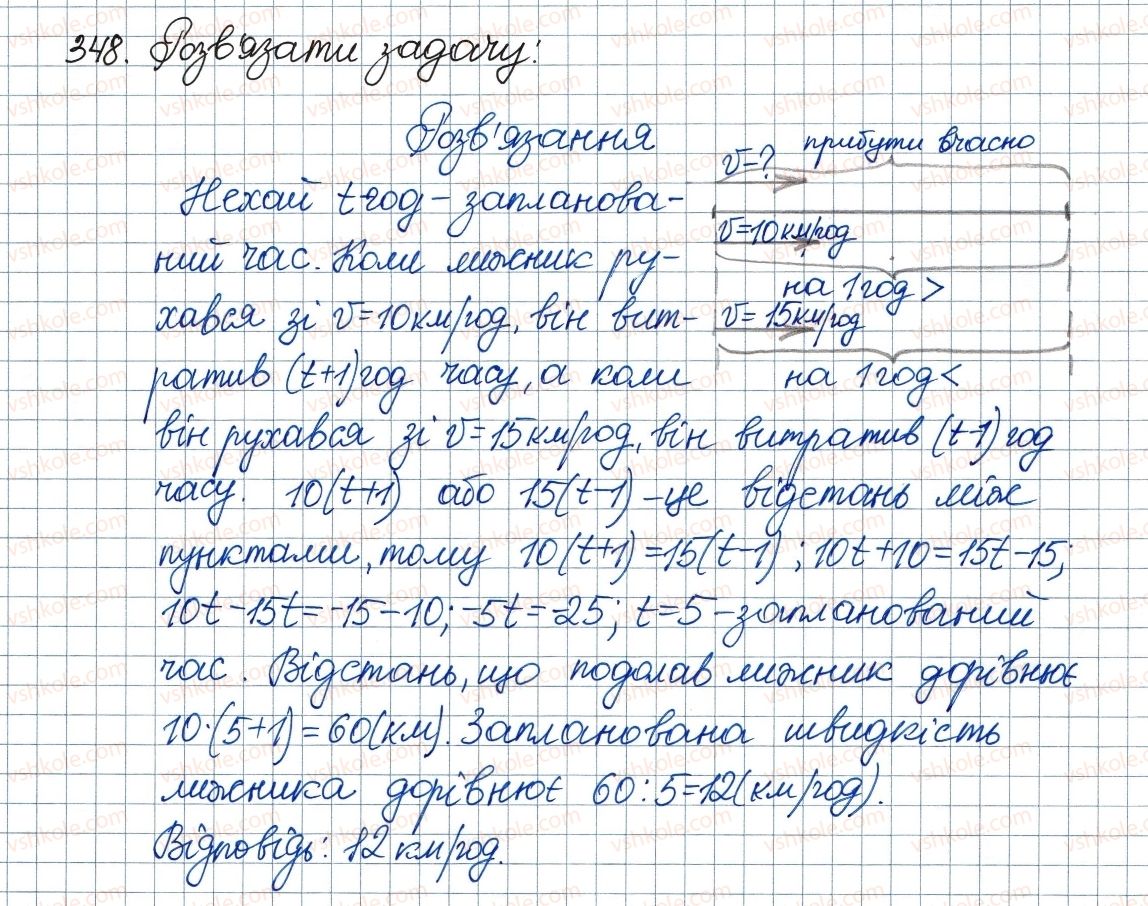 348. Розв'язати задачу:
Розв'язання
Нехай t год – запланова-
ний час. Коли лижник ру-
хався зі v=10км/год, він вит-
ратив (t+1)год часу, а коли
він рухався зі v=15км/год, він витратив (t-1)год
часу. 10(t+1) або 15(t-1) – це відстань між
пунктами, тому 10(t+1)=15(t-1); 10t+10=15t-15;
10t-15t=-15-10; -5t=-25; t=5 – запланований
час. Відстань, що подолав лижник дорівнює
10·(5+1)=60(км). Запланована швидкість
лижника дорівнює 60:5=12(км/год).
Відповідь: 12 км/год.
v=? прибути вчасно
v=10км/год
на 1год >
v=15км/год
на 1год <
vshkole.com